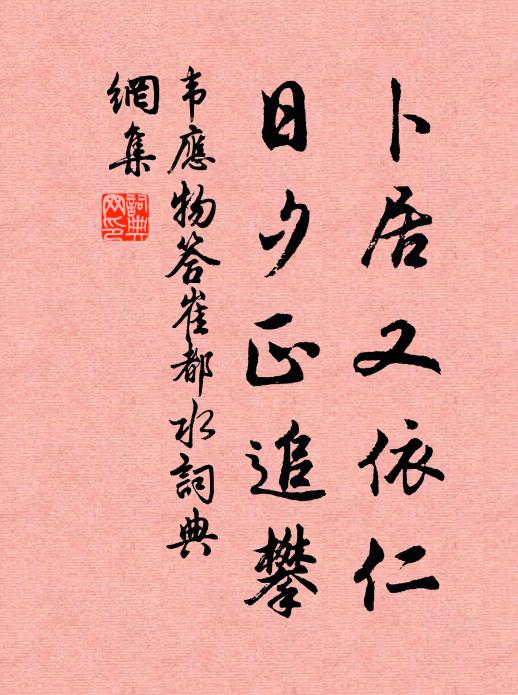 卜居又依仁
日夕正追攀
韦應物答崔都水詞典
網集
詞典網印